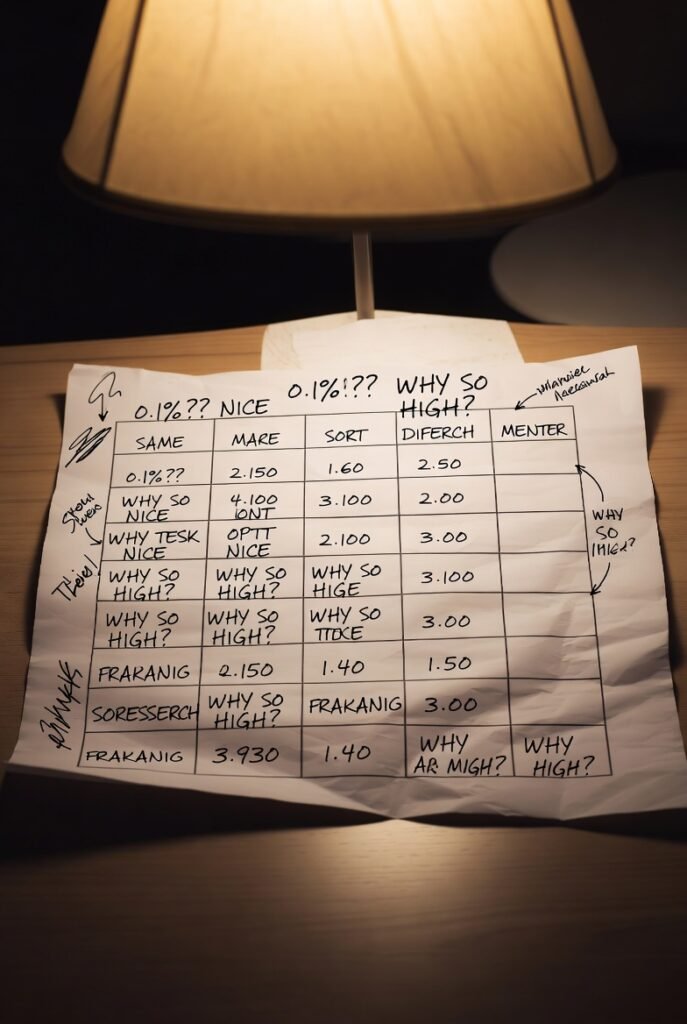 0.1%?? NICE
0.1%!?? WHY SO
HIGH?
SAME MARE SORT DIFERCH MENTER
0.1%?? 2.150 1.60 2.50
WHY SO
NICE
4.100
IONT
3.100 2.00
WHY TESK
NICE
OPTT
NICE
2.100 3.00
WHY SO
HIGH?
WHY SO
HIGH?
WHY SO
HIGE
3.100
WHY SO
HIGH?
WHY SO
HIGH?
WHY SO
3.00
FRAKANIG 2.150 1.40 1.50
SORESSERCH
WHY SO
HIGH?
FRAKANIG 3.00
FRAKANIG 3.930 1.40
WHY
AR MIGH?
WHY
HIGH?
WHY
SO